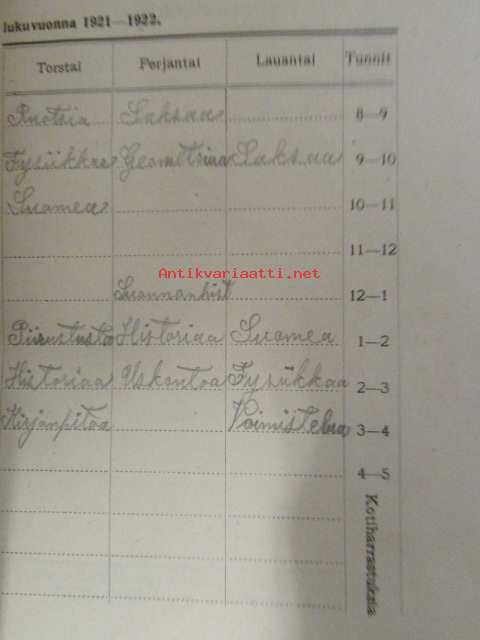 lukuvuonna 1921—1922.
Torstai Perjantai Lauantai Tunnit
Ruotsia Saksaa 8—9
Fysiikkaa Geometriaa Saksaa 9—10
Suomea 10—11
11—12
Antikvariaatti.net
Luonnonhist 12—1
Piirustusta Historiaa Suomea 1—2
Historiaa Uskontoa Fysiikkaa 2—3
Kirjanpitoa Voimistelua 3—4
4—5
Kotiharrastuksia